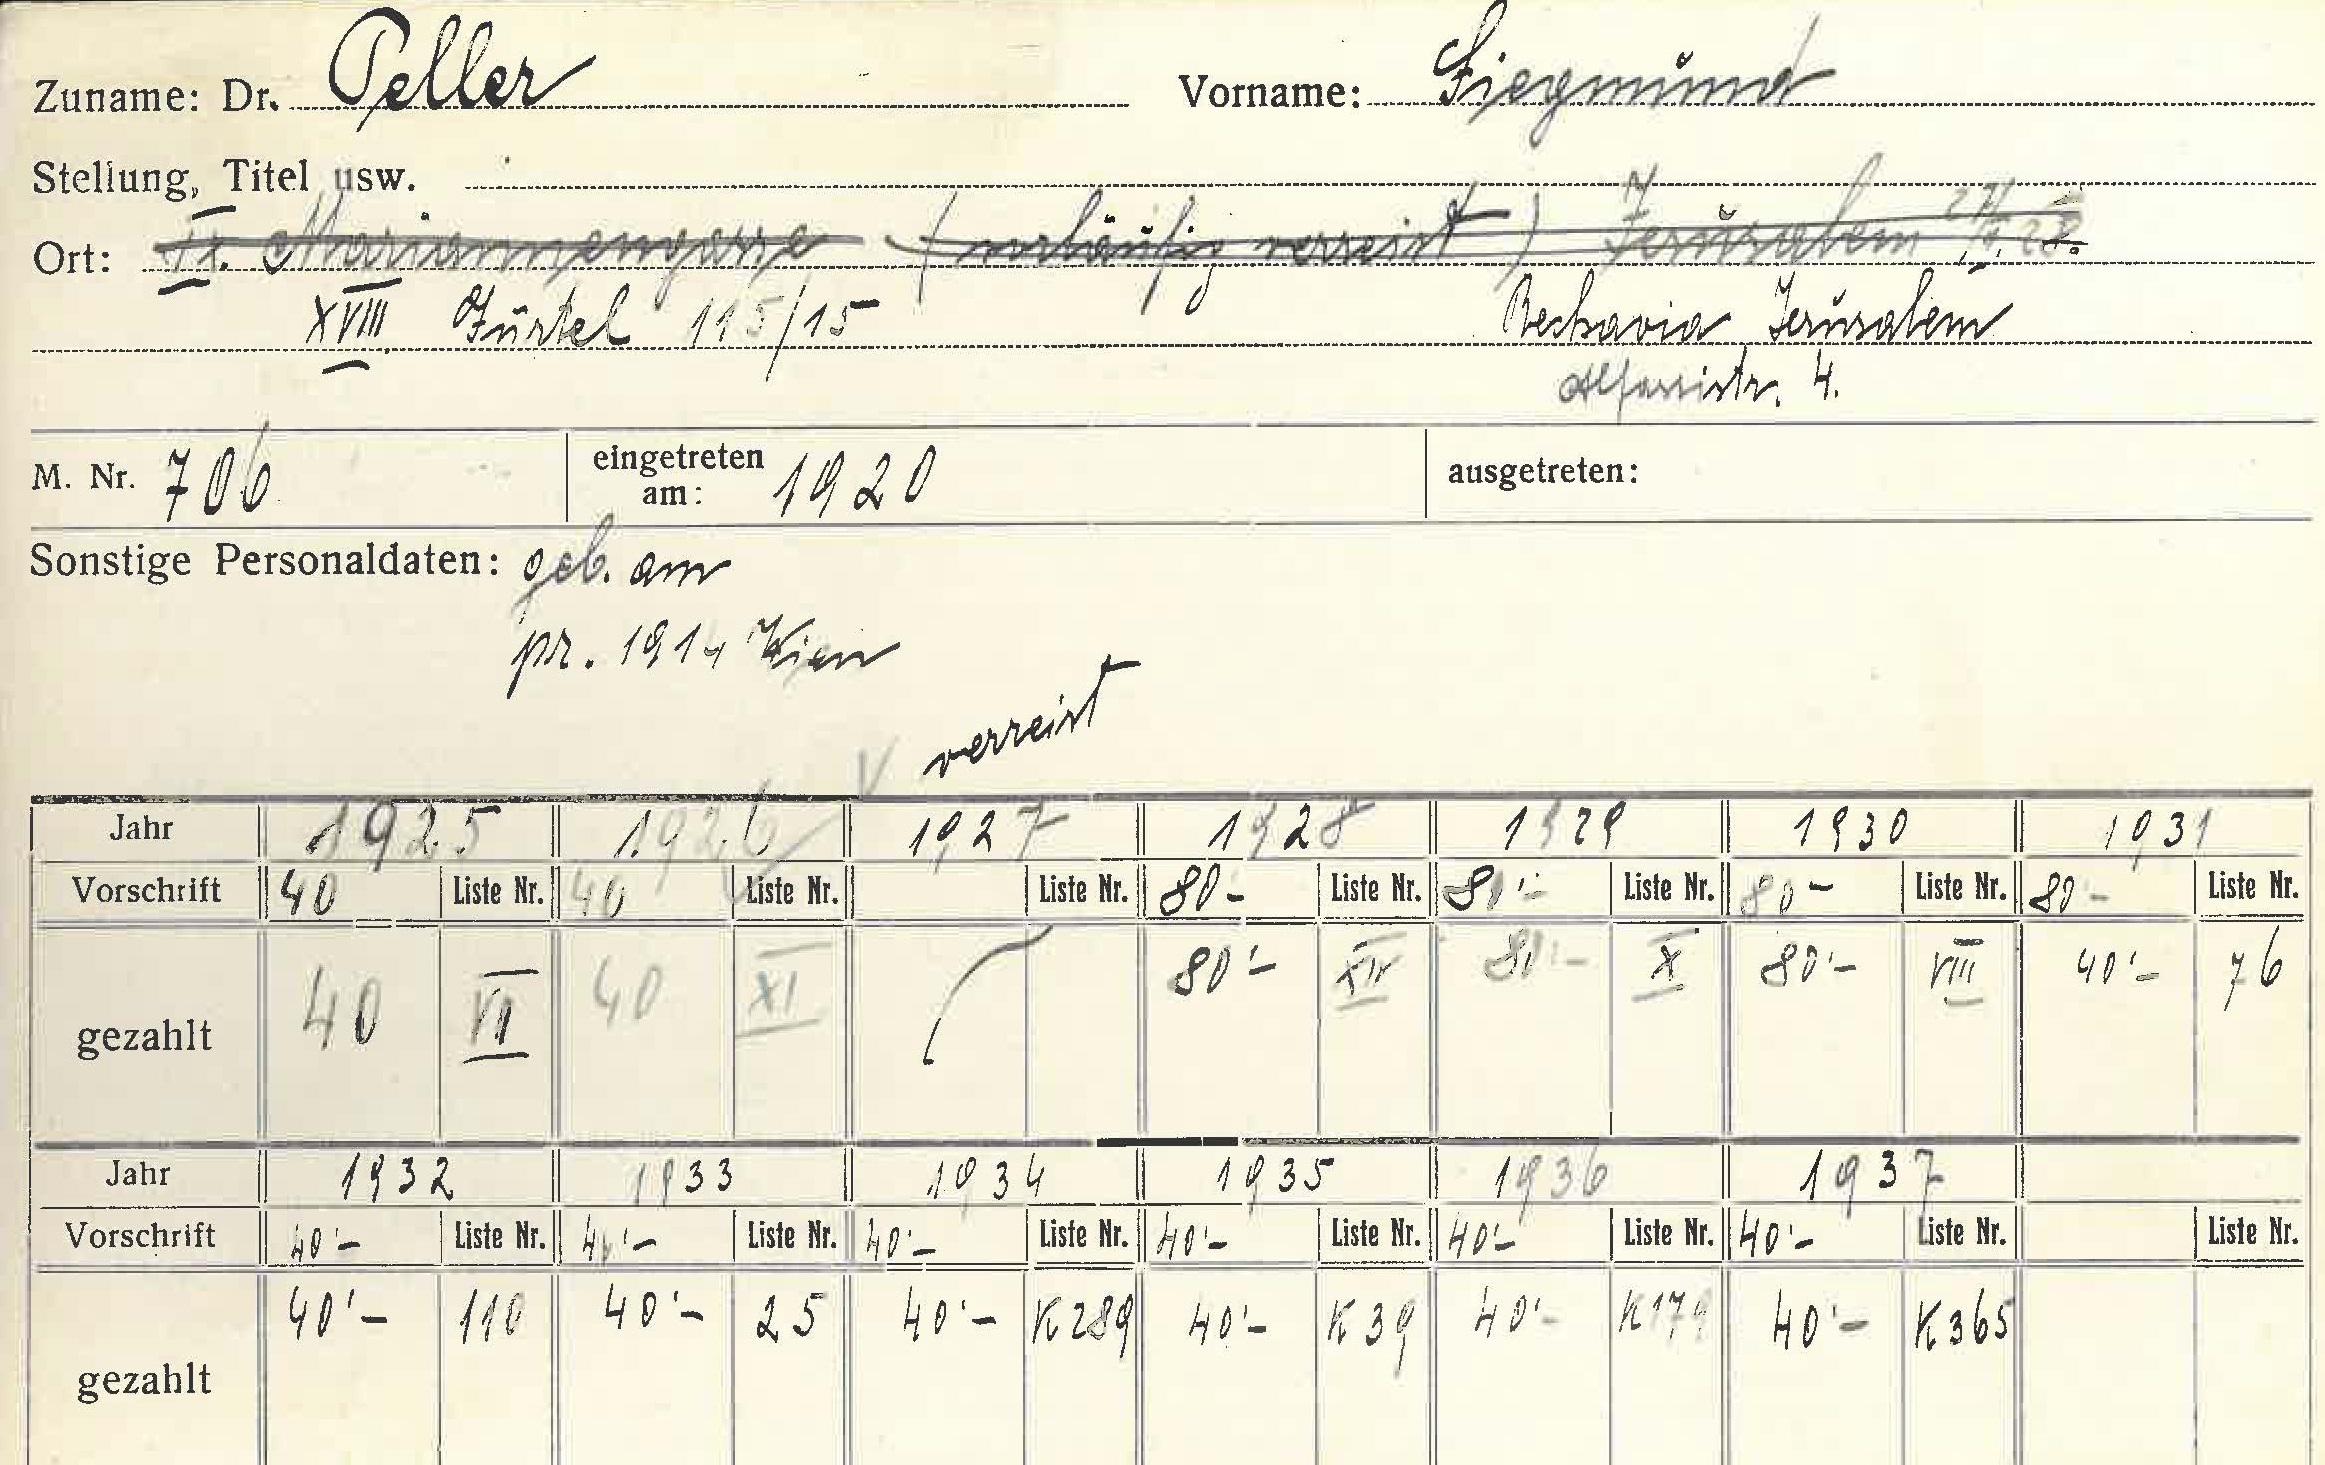 Zuname: Dr. Peller Vorname: Siegmund
Stellung, Titel usw.
Ort: IX. Mariannengasse (vorläufig verreist) Jerusalem
XVIII Gürtel 115/15 Rechavia Jerusalem
Alfassistr. 4.
M. Nr. 706 eingetreten am: 1920 ausgetreten:
Sonstige Personaldaten: geb. am
pr. 1914 Wien
verreist
Jahr 1925 1926 1927 1928 1929 1930 1931
Vorschrift 40 Liste Nr. 40 Liste Nr. Liste Nr. 80- Liste Nr. 80'- Liste Nr. 80- Liste Nr. 80- Liste Nr.
gezahlt 40 VII 40 XI 80'- 80'- X 80'- VIII 40'- 76
Jahr 1932 1933 1934 1935 1936 1937
Vorschrift 40'- Liste Nr. 40'- Liste Nr. 40'- Liste Nr. 40'- Liste Nr. 40'- Liste Nr. 40'- Liste Nr. Liste Nr.
gezahlt 40'- 110 40'- 25 40'- K289 40'- K39 40'- K179 40'- K365